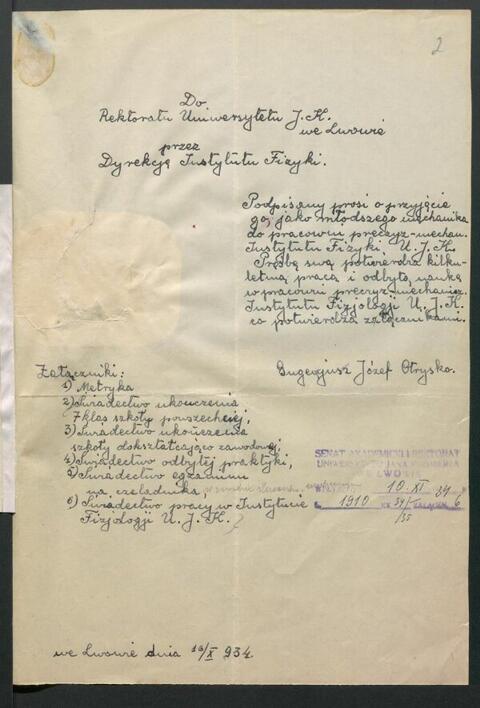 2
Do
Rektoratu Uniwersytetu J. K.
we Lwowie
przez
Dyrekcję Instytutu Fizyki.
Podpisany prosi o przyjęcie
go, jako młodszego mechanika
do pracowni precyz-mechan.
Instytutu Fizyki U. J. K.
Prośbę swą potwierdza kilku-
letnią pracą i odbytą nauką
w pracowni precyz-mechanicz.
Instytutu Fizjologji U. J. K.
co potwierdza załącznikami.
Eugenjusz Józef Otrysko.
Załączniki:
1) Metryka
2) Świadectwo ukończenia
7 klas szkoły powszechnej,
3) Świadectwo ukończenia
szkoły dokształcająco zawodowej,
4) Świadectwo odbytej praktyki,
5) Świadectwo egzaminu
na czeladnika
6) Świadectwo pracy w Instytucie
Fizjologji U. J. K.
SENAT AKADEMICKI I REKTORAT
UNIWERSYTETU JANA KAZIMIERZA
WE LWOWIE
10. XI 34
L. 1910 ex 34/35 ZAŁĄCZN. 6
we Lwowie dnia /X 934.